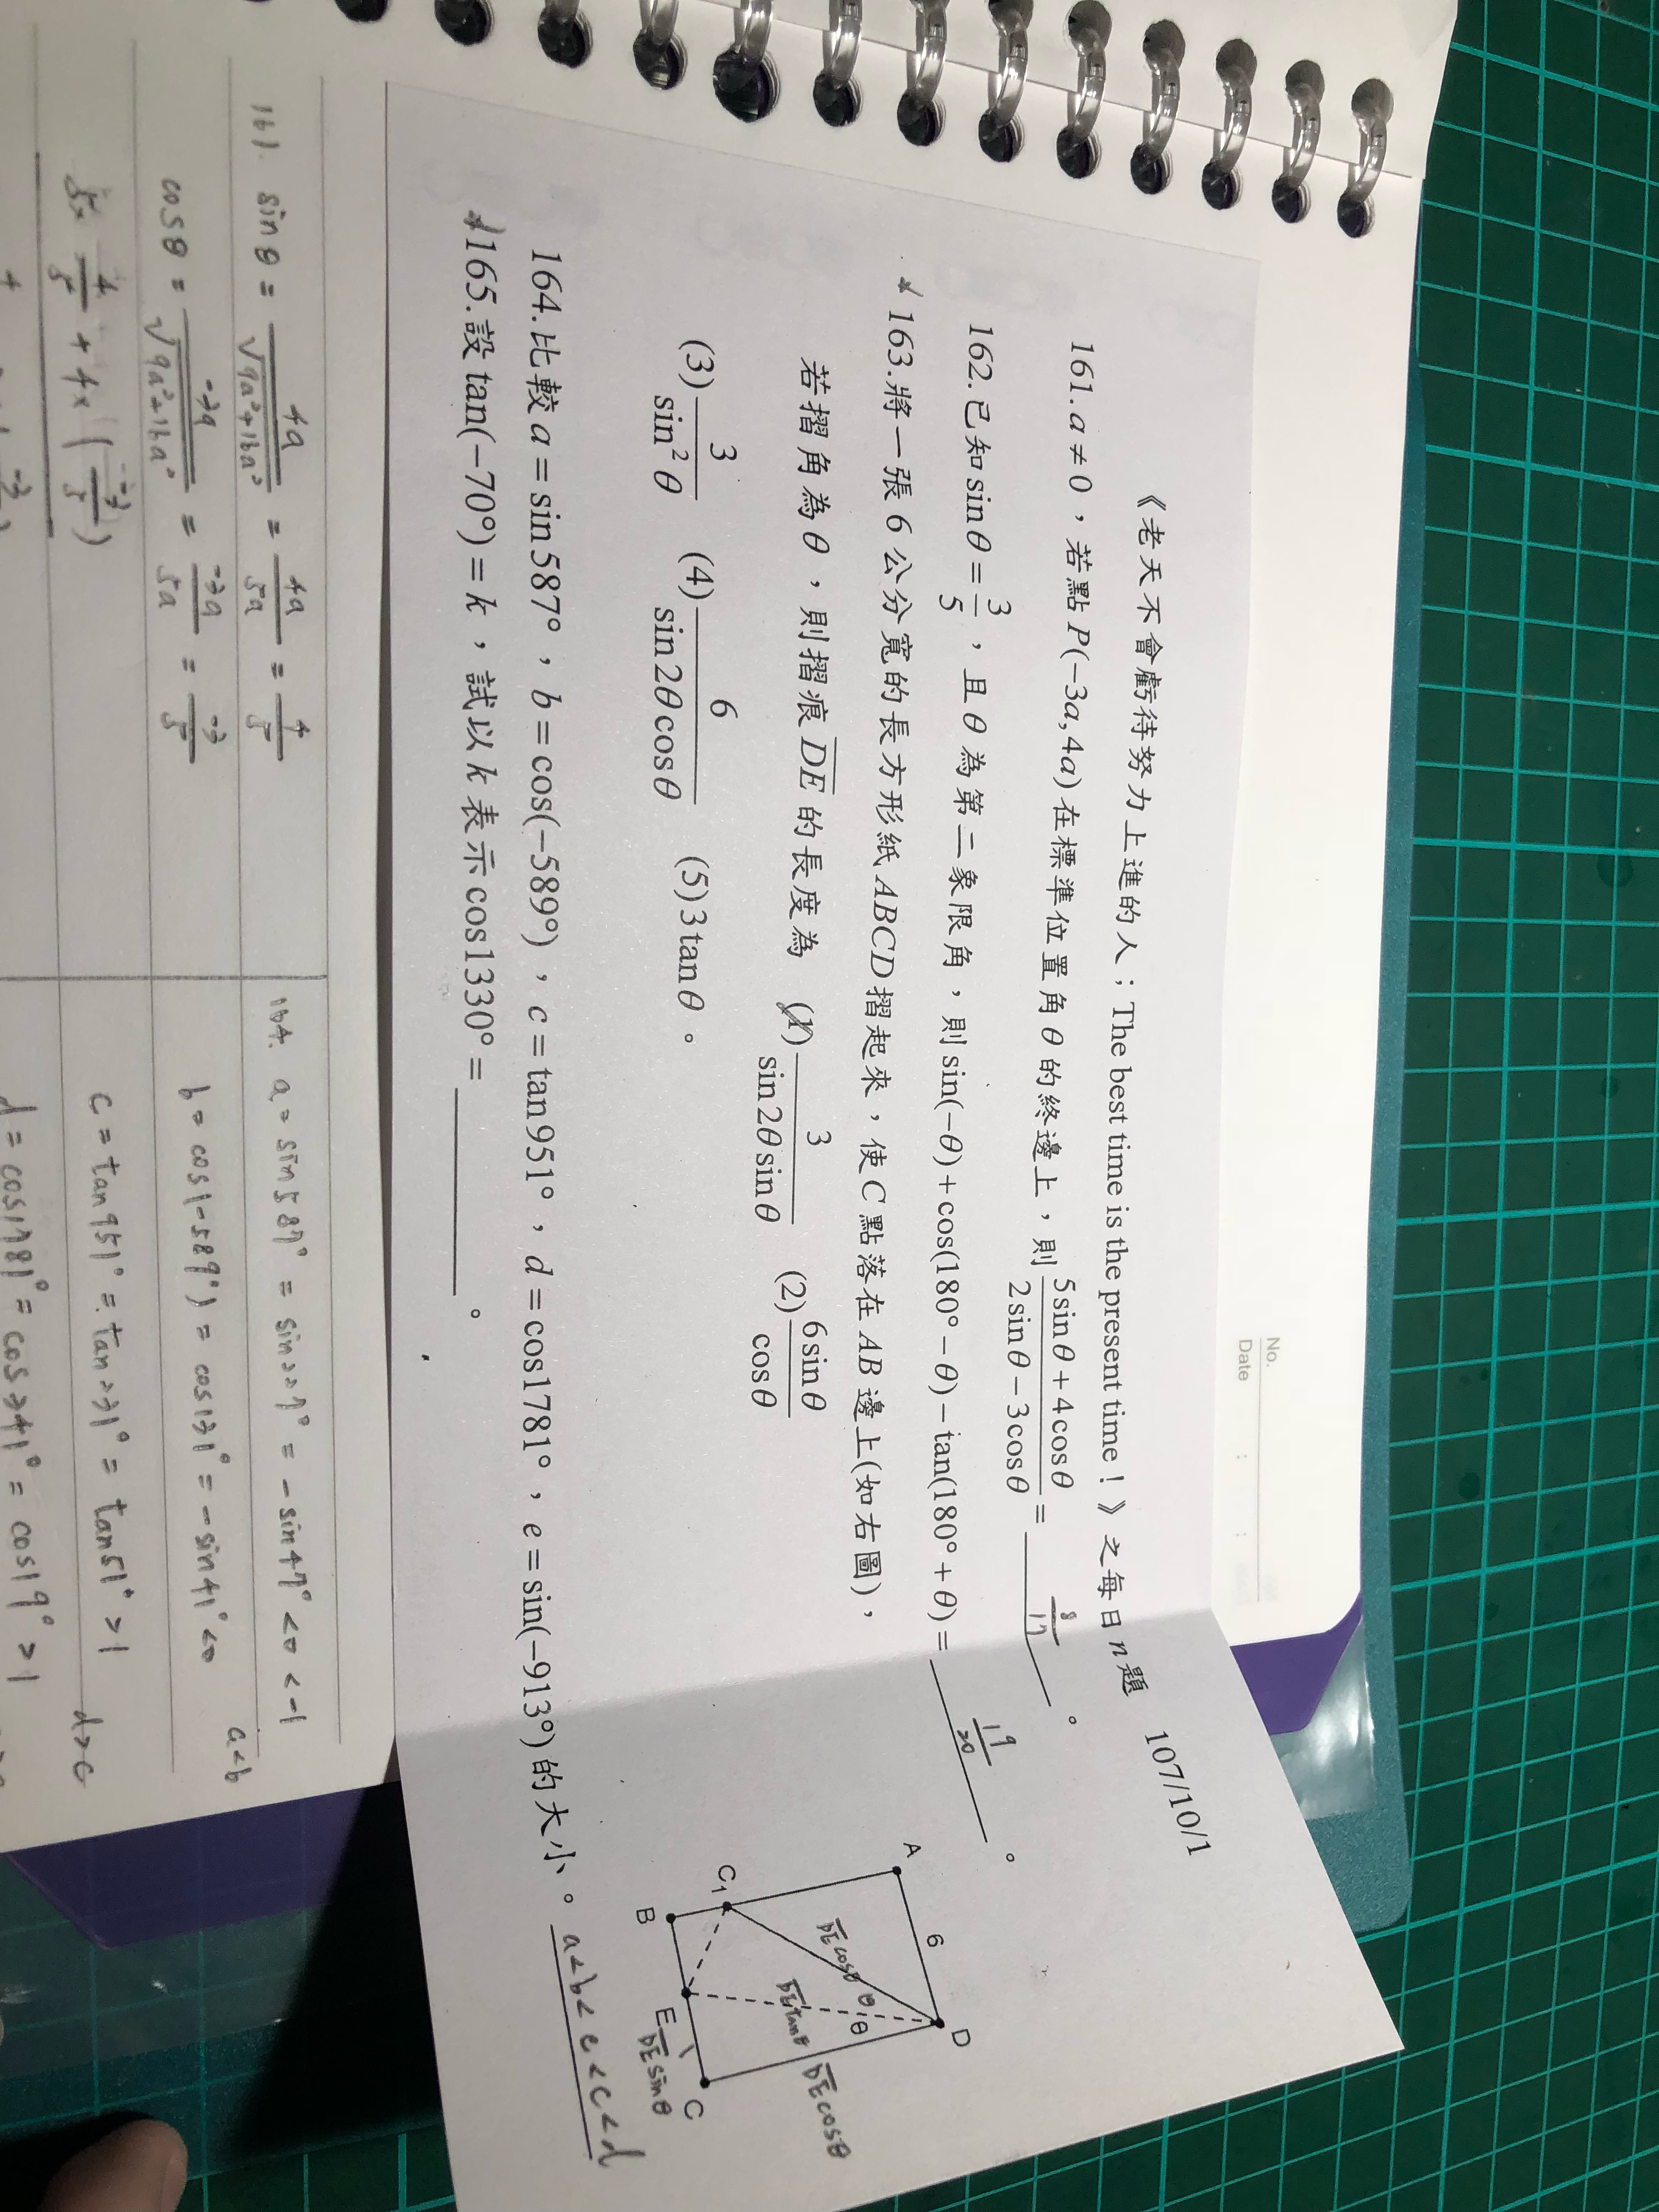 No.
Date : :
《老天不會虧待努力上進的人；The best time is the present time！》之每日n題 107/10/1
161. a≠0，若點P(−3a,4a)在標準位置角θ的終邊上，則 (5sinθ+4cosθ)/(2sinθ−3cosθ) = 8/17 。
162. 已知sinθ=3/5，且θ為第二象限角，則sin(−θ)+cos(180°−θ)−tan(180°+θ)= 19/20 。
163. 將一張6公分寬的長方形紙ABCD摺起來，使C點落在AB邊上(如右圖)，
若摺角為θ，則摺痕DE的長度為 (1) 3/(sin2θsinθ) (2) 6sinθ/cosθ
(3) 3/sin²θ (4) 6/(sin2θcosθ) (5)3tanθ。
A 6 D
C₁ B E C
θ θ
DEcosθ
DEtanθ
DEcosθ
DEsinθ
164. 比較a=sin587°，b=cos(−589°)，c=tan951°，d=cos1781°，e=sin(−913°)的大小。 a<b<e<c<d
165. 設tan(−70°)=k，試以k表示cos1330°= 。
161. sinθ = 4a/√(9a²+16a²) = 4a/5a = 4/5
cosθ = -3a/√(9a²+16a²) = -3a/5a = -3/5
5×4/5 + 4×(-3/5)
164. a = sin587° = sin227° = -sin47° <0 <-1
b = cos(-589°) = cos131° = -sin41° <0
a<b
c = tan951° = tan231° = tan51° >1
d>c
d = cos1781° = cos341° = cos19° >1